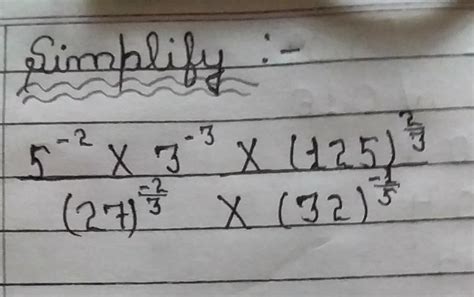 Simplify :-
5^{-2} × 3^{-3} × (125)^{2/3}
(27)^{-2/3} × (32)^{-1/5}